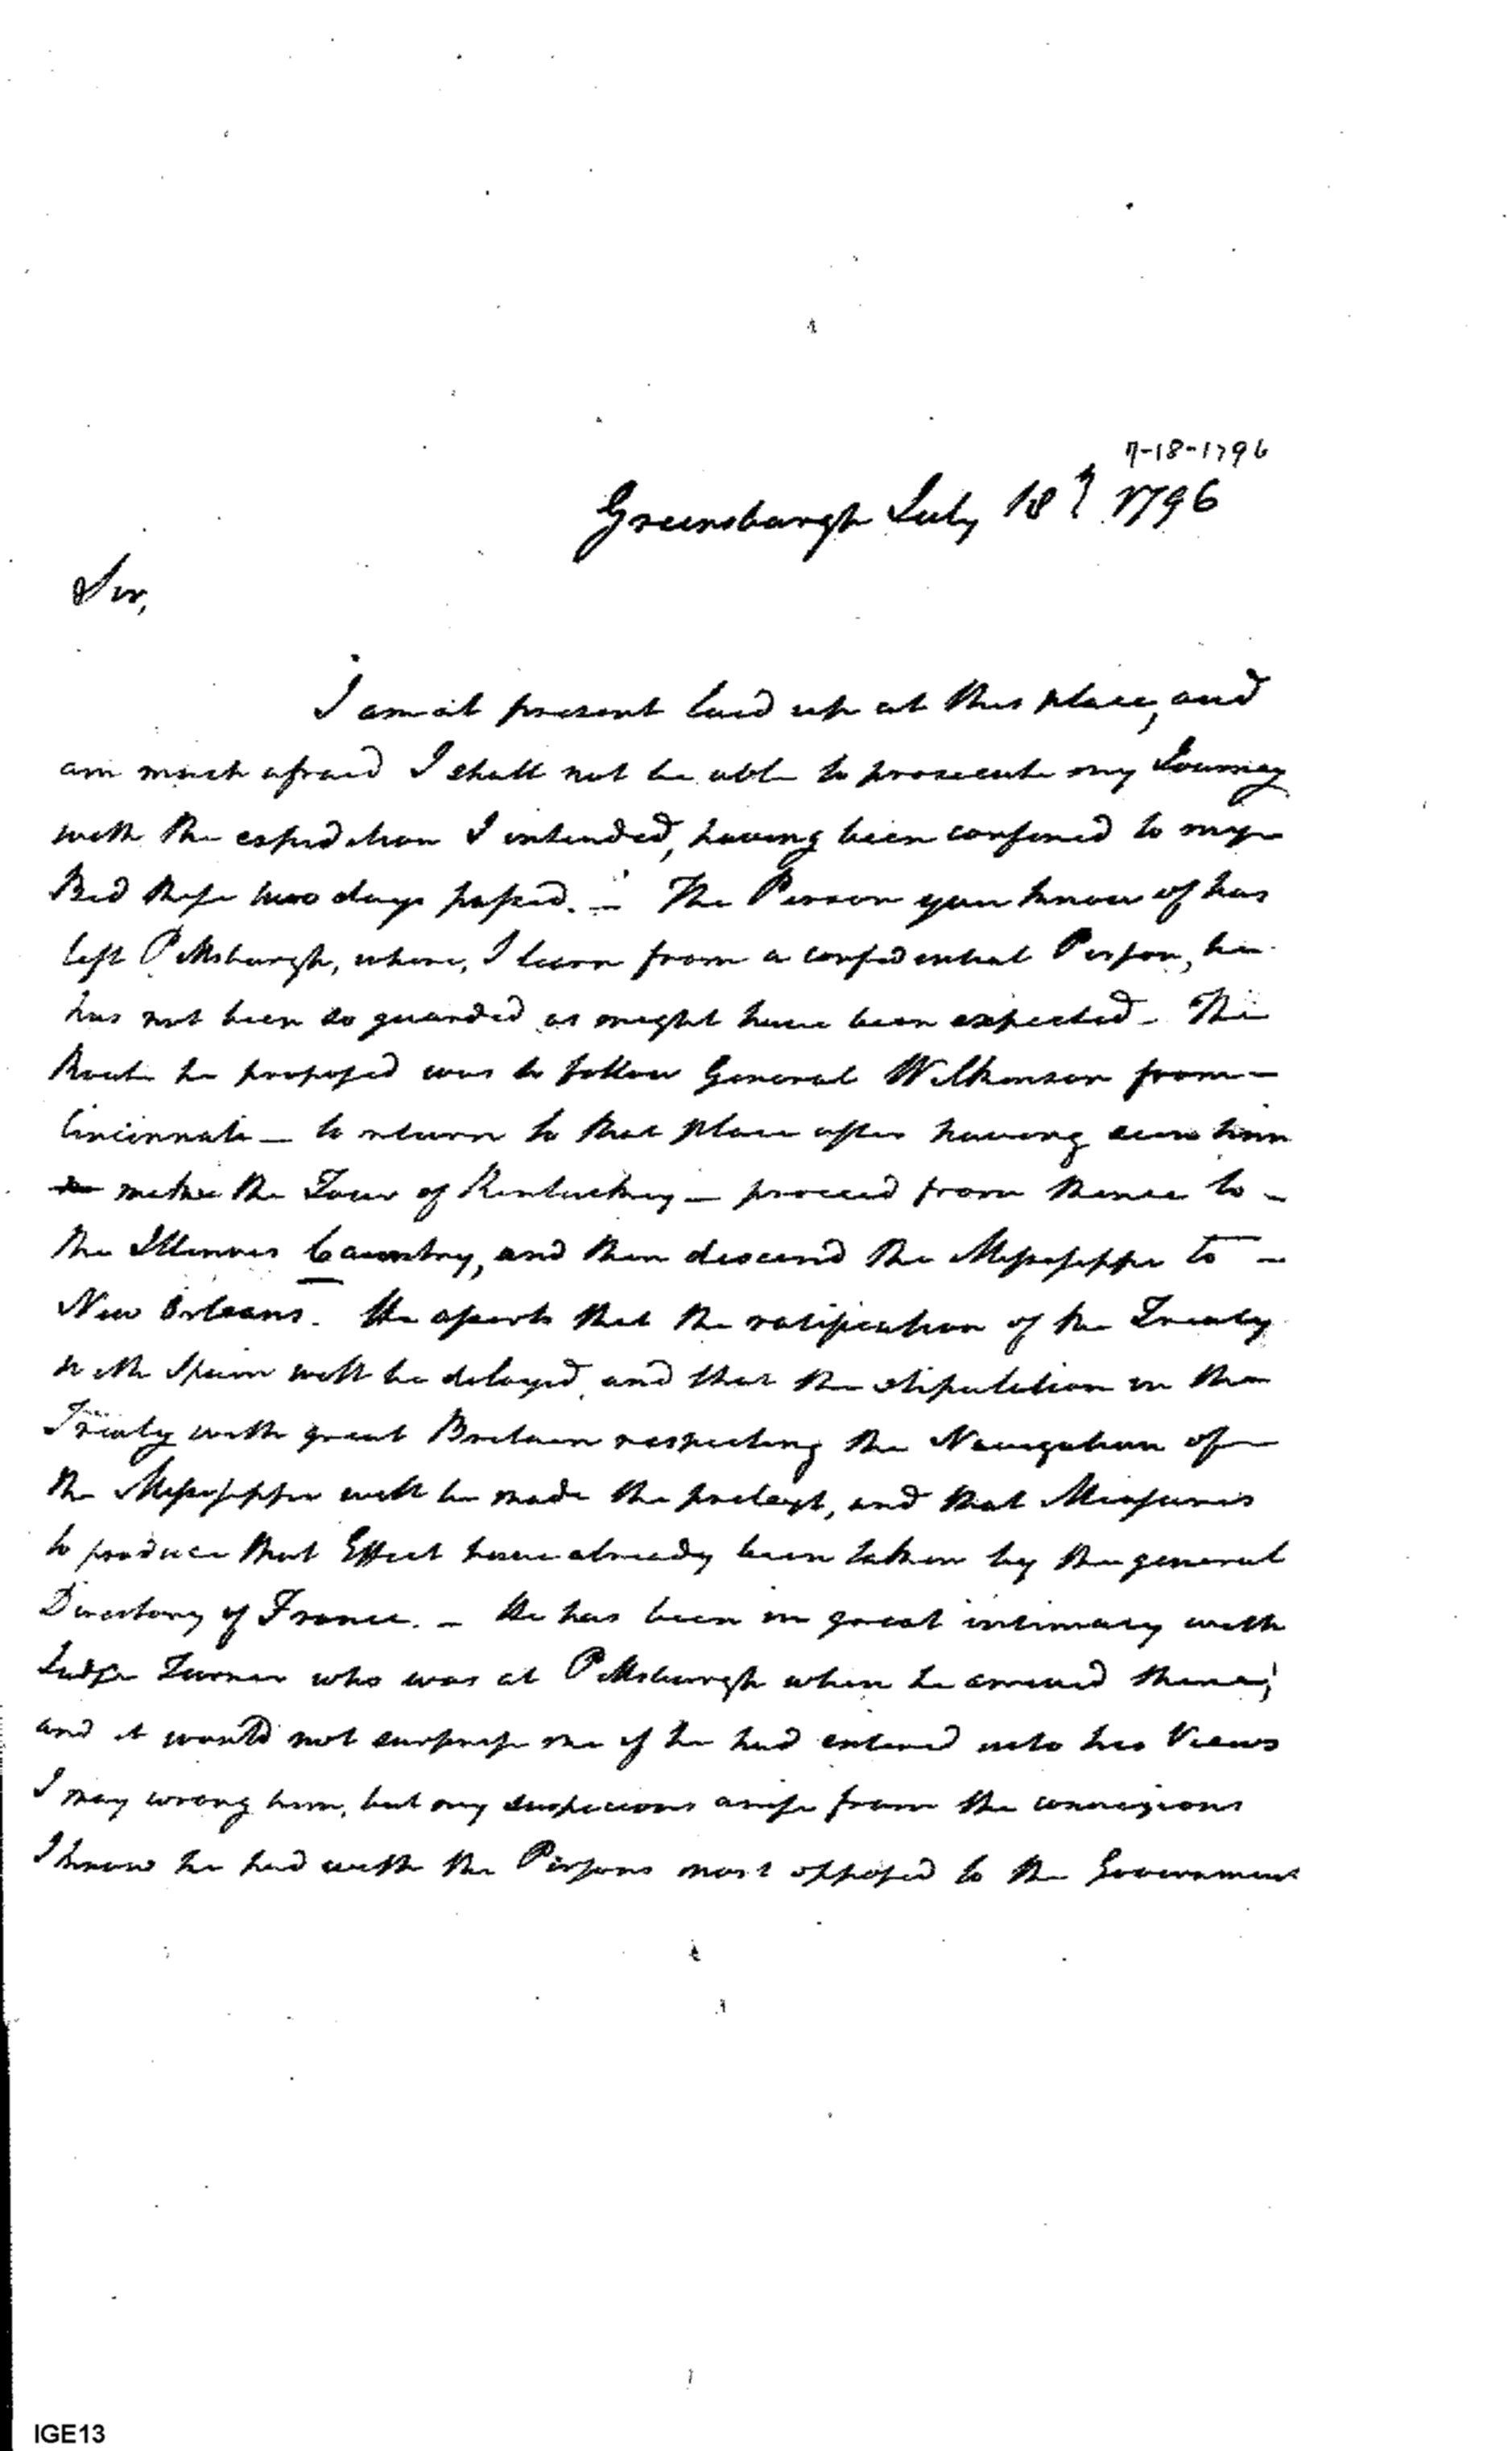 7-18-1796
Greensburgh July 18th 1796
Sir,
I am at present laid up at this place, and
am much afraid I shall not be able to prosecute my Journey
with the expedition I intended, having been confined to my
Bed these two days passed. — The Person you know of has
left Pittsburgh, where, I learn from a confidential Person, he
has not been so guarded as might have been expected — The
Route he proposed was to follow General Wilkinson from —
Cincinnati — to return to that place after having seen him
make the Tour of Kentuckey — proceed from thence to —
the Illinois Country, and then descend the Mississippi to —
New Orleans. He asserts that the ratification of the Treaty
with Spain will be delayed, and that the stipulation in the
Treaty with great Britain respecting the Navigation of —
the Mississippi will be made the pretext, and that Measures
to produce that Effect have already been taken by the general
Directory of France. — He has been in great intimacy with
Judge Turner who was at Pittsburgh when he arrived there;
and it would not surprise me if he had entered into his Views
I may wrong him, but my suspicions arise from the connexions
I know he had with the Persons most opposed to the Government
IGE13